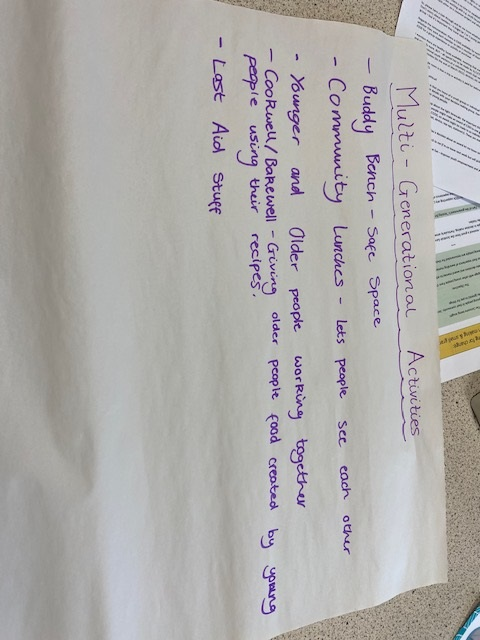 Multi-Generational Activities
- Buddy Bench - Safe Space
- Community Lunches - lets people see each other
• Younger and Older people working together
- Cookwell/Bakewell - Giving older people food created by young
people using their recipes.
- Last Aid Stuff